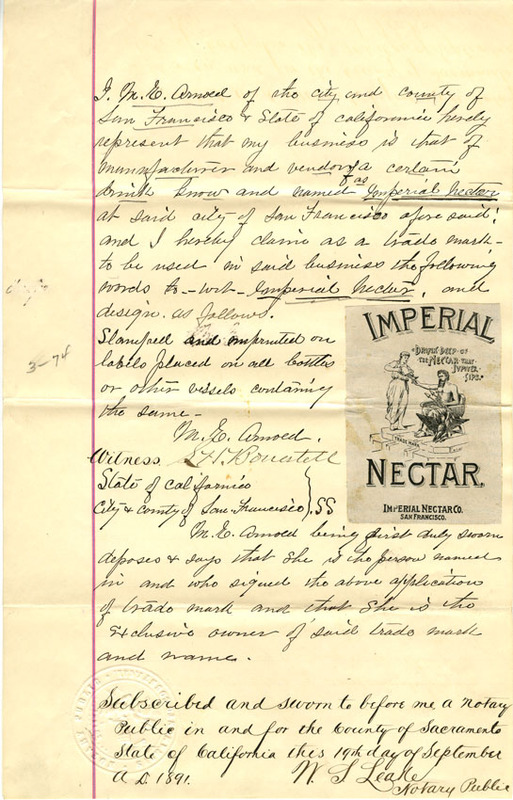 I, M. E. Arnoed of the city and county of
San Francisco & State of california hereby
represent that my business is that of
manufacturer and vendor of a certain
drink know and named as Imperial Nectar
at said city of San Francisco afore said;
and I hereby claim as a trade mark
to be used in said business the following
words to-wit- Imperial Nectar, and
design as follows.
Stamped and imprinted on
labils placed on all bottles
or other vessels containing
the same-
3-74
IMPERIAL
"DRINK DEEP OF
THE NECTAR THAT
JUPITER
SIPS."
TRADE MARK
NECTAR.
IMPERIAL NECTAR CO.
SAN FRANCISCO.
M. E. Arnoed.
Witness
State of california
City & county of San Francisco } SS
M. E. Arnoed being first duly sworn
deposes & says that she is the person named
in and who signed the above application
of trade mark and that she is the
exclusive owner of said trade mark
and name.
Subscribed and sworn to before me a notary
Public in and for the County of Sacramento
State of California this 19th day of September
A D. 1891.
W. S. Leake
Notary Public